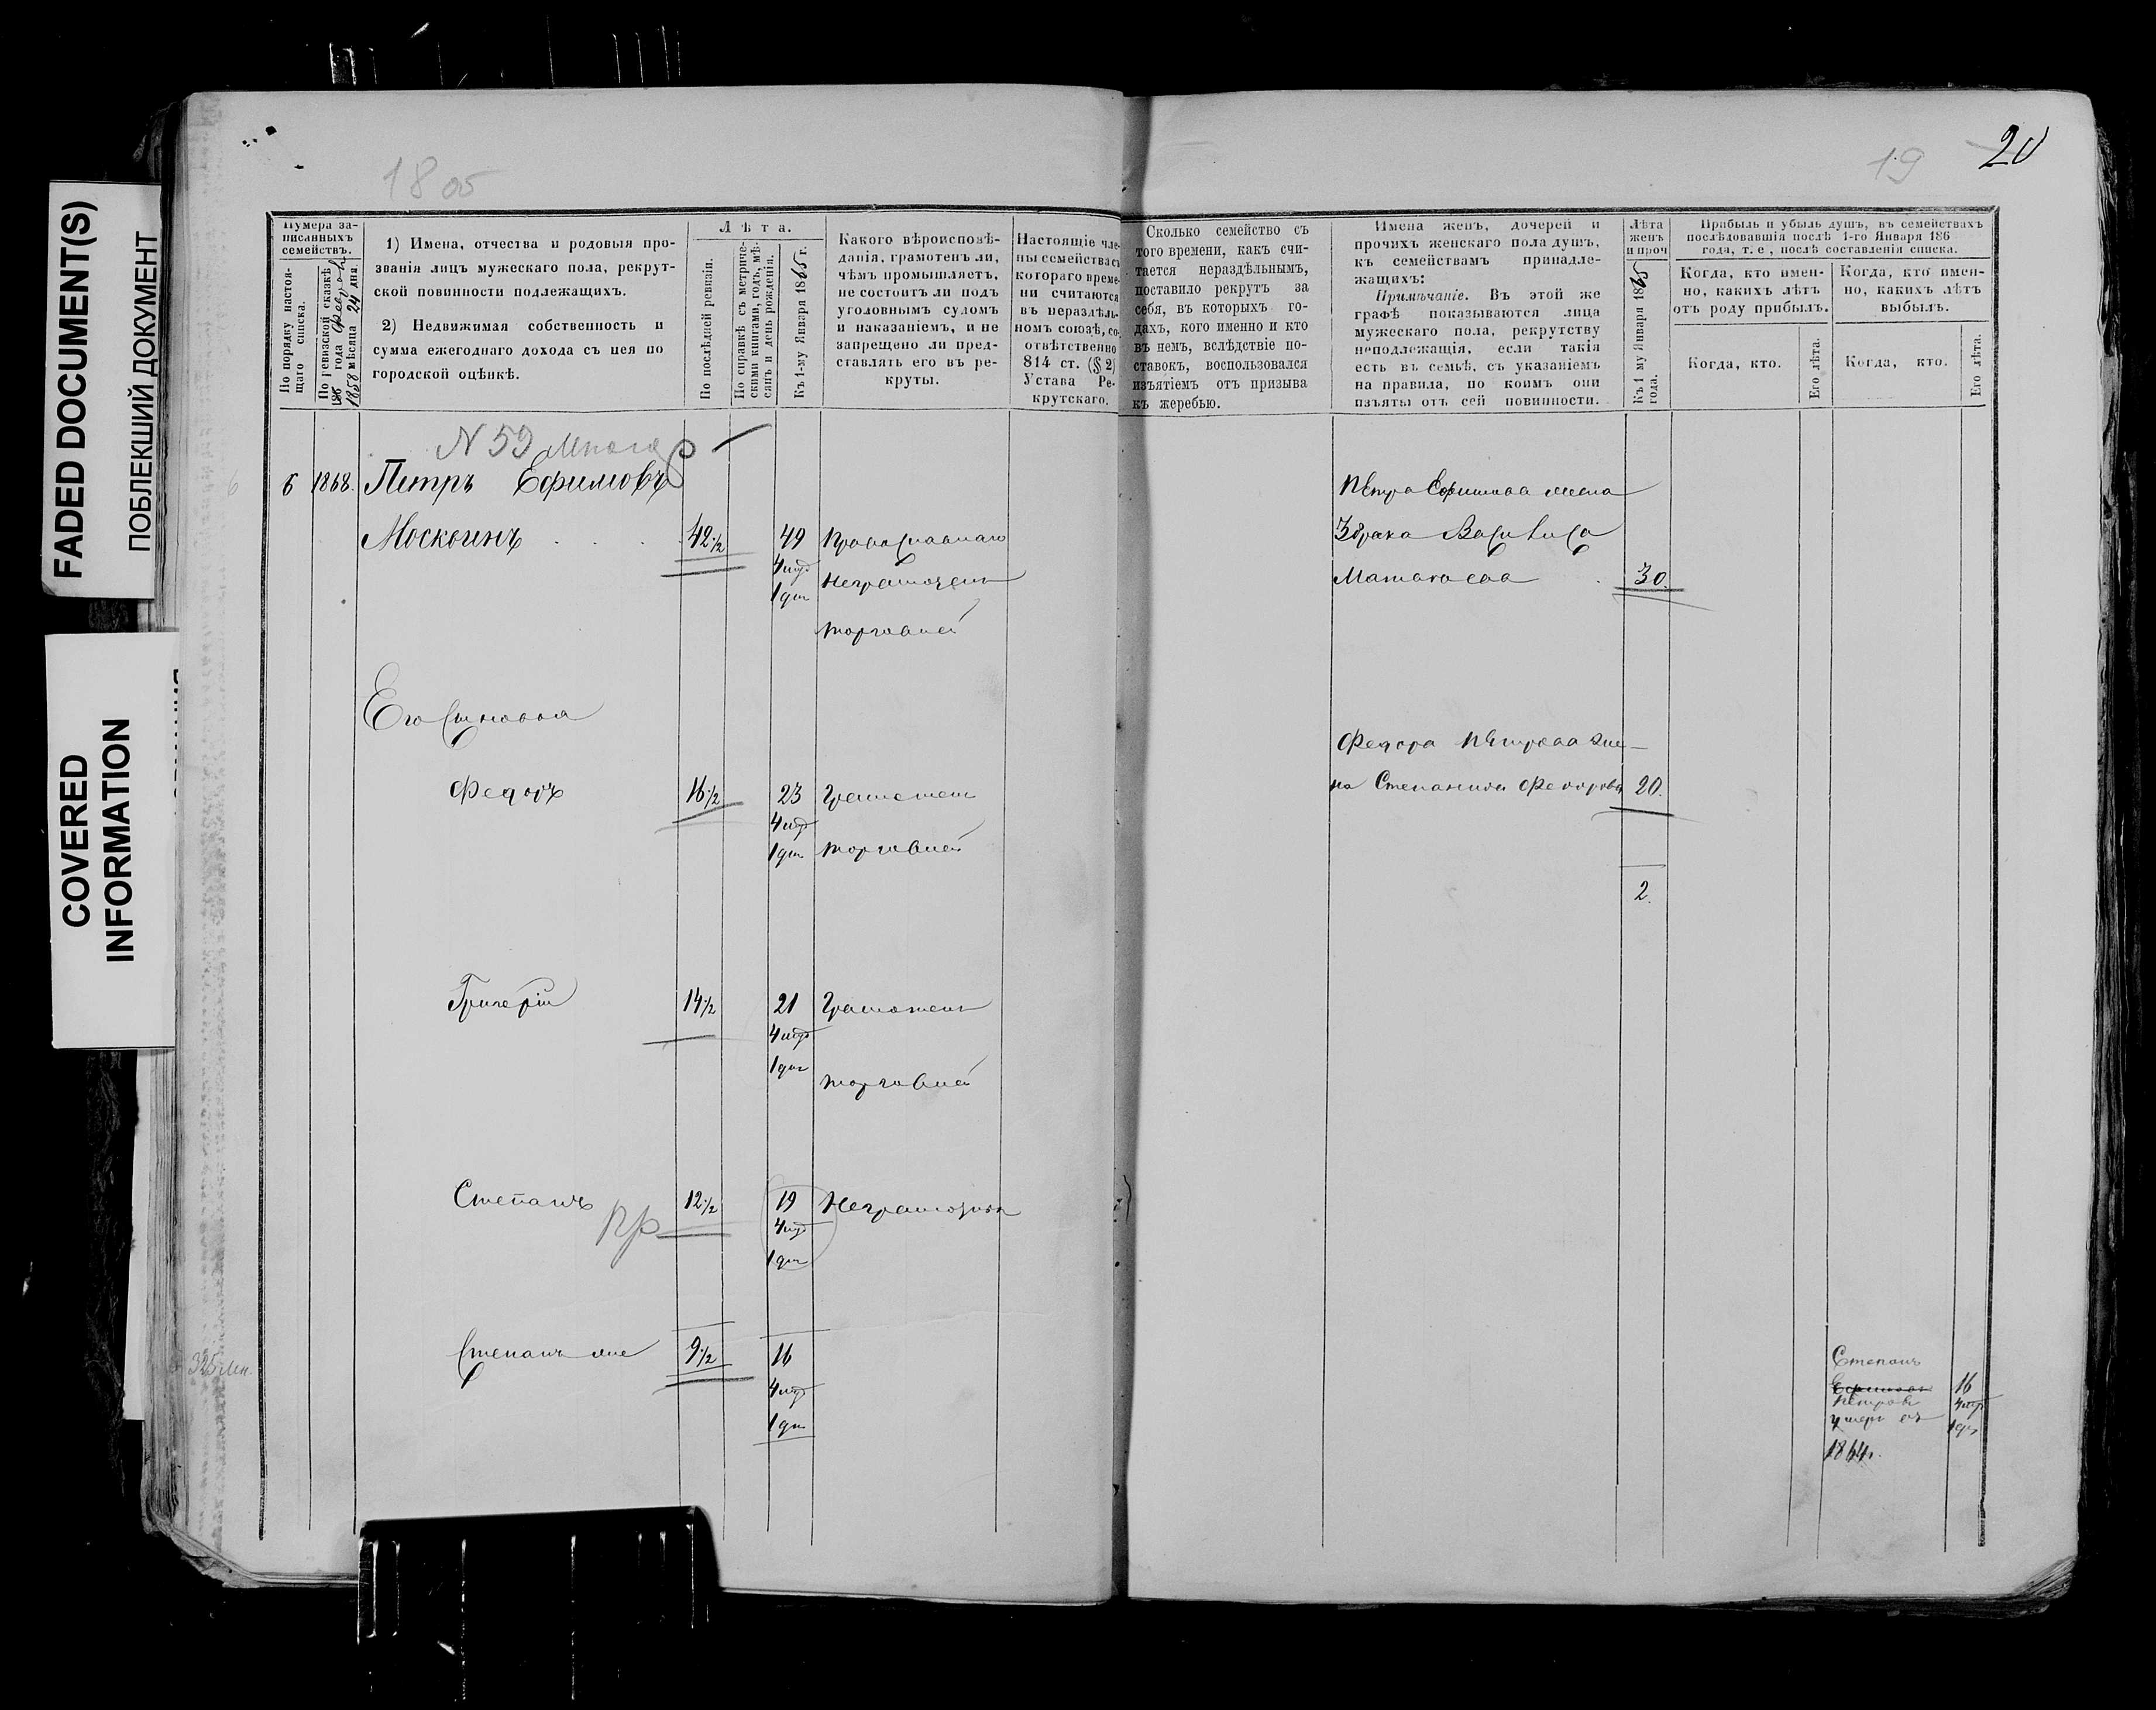 FADED DOCUMENT(S)
ПОБЛЕКШИЙ ДОКУМЕНТ
COVERED
INFORMATION
1805
19
20
Нумера за-
писанныхъ
семействъ.
По порядку настоя-
щаго списка.
По ревизской сказкѣ
185 года
1858 мѣсяца 24 дня.
1) Имена, отчества и родовыя про-
званія лицъ мужескаго пола, рекрут-
ской повинности подлежащихъ.
2) Недвижимая собственность и
сумма ежегоднаго дохода съ нея по
городской оцѣнкѣ.
Лѣта.
По послѣдней ревизіи.
По справкѣ съ метриче-
скими книгами, годъ, мѣ-
сяцъ и день рожденія.
Къ 1-му Января 1865 г.
Какого вѣроисповѣ-
данія, грамотенъ ли,
чѣмъ промышляетъ,
не состоитъ ли подъ
уголовнымъ судомъ
и наказаніемъ, и не
запрещено ли пред-
ставлять его въ ре-
круты.
Настоящіе чле-
ны семейства съ
котораго време-
ни считаются
въ нераздѣль-
номъ союзѣ, со-
отвѣтственно
814 ст. (§ 2)
Устава Ре-
крутскаго.
Сколько семейство съ
того времени, какъ счи-
тается нераздѣльнымъ,
поставило рекрутъ за
себя, въ которыхъ го-
дахъ, кого именно и кто
въ немъ, вслѣдствіе по-
ставокъ, воспользовался
изъятіемъ отъ призыва
къ жеребью.
Имена женъ, дочерей и
прочихъ женскаго пола душъ,
къ семействамъ принадле-
жащихъ:
Примѣчаніе. Въ этой же
графѣ показываются лица
мужескаго пола, рекрутству
неподлежащія, если такія
есть въ семьѣ, съ указаніемъ
на правила, по коимъ они
изъяты отъ сей повинности.
Лѣта
женъ
и проч
Къ 1 му Января 1865
года.
Прибыль и убыль душъ, въ семействахъ
послѣдовавшія послѣ 1-го Января 186
года, т. е , послѣ составленія списка.
Когда, кто имен-
но, какихъ лѣтъ
отъ роду прибылъ.
Когда, кто имен-
но, какихъ лѣтъ
выбылъ.
Когда, кто.
Его лѣта.
Когда, кто.
Его лѣта.
N 59
6 6 1868. Петръ Ефимовъ
Москвинъ 42½ 49 Православнаго
4 мѣ
1 дн Неграмотенъ
торговлей
Петра Ефимова жена
2 брака Василиса
30.
Его Сыновья
Федоръ 16½ 23 Грамотенъ
4 мѣ
1 дн торговлей
Федора Петрова же-
на Степанида Федорова 20.
2.
Григорій 14½ 21 Грамотенъ
4 мѣ
1 дн
торговлей
Степанъ 12½ 19 Неграмотенъ
пр 4 мѣ
1 дн
325
Степанъ 9½ 16
4 мѣ
1 дн
Степанъ
Ефимовъ 16
Петровъ 4 мѣ
умеръ въ 1 дн
1864 г.